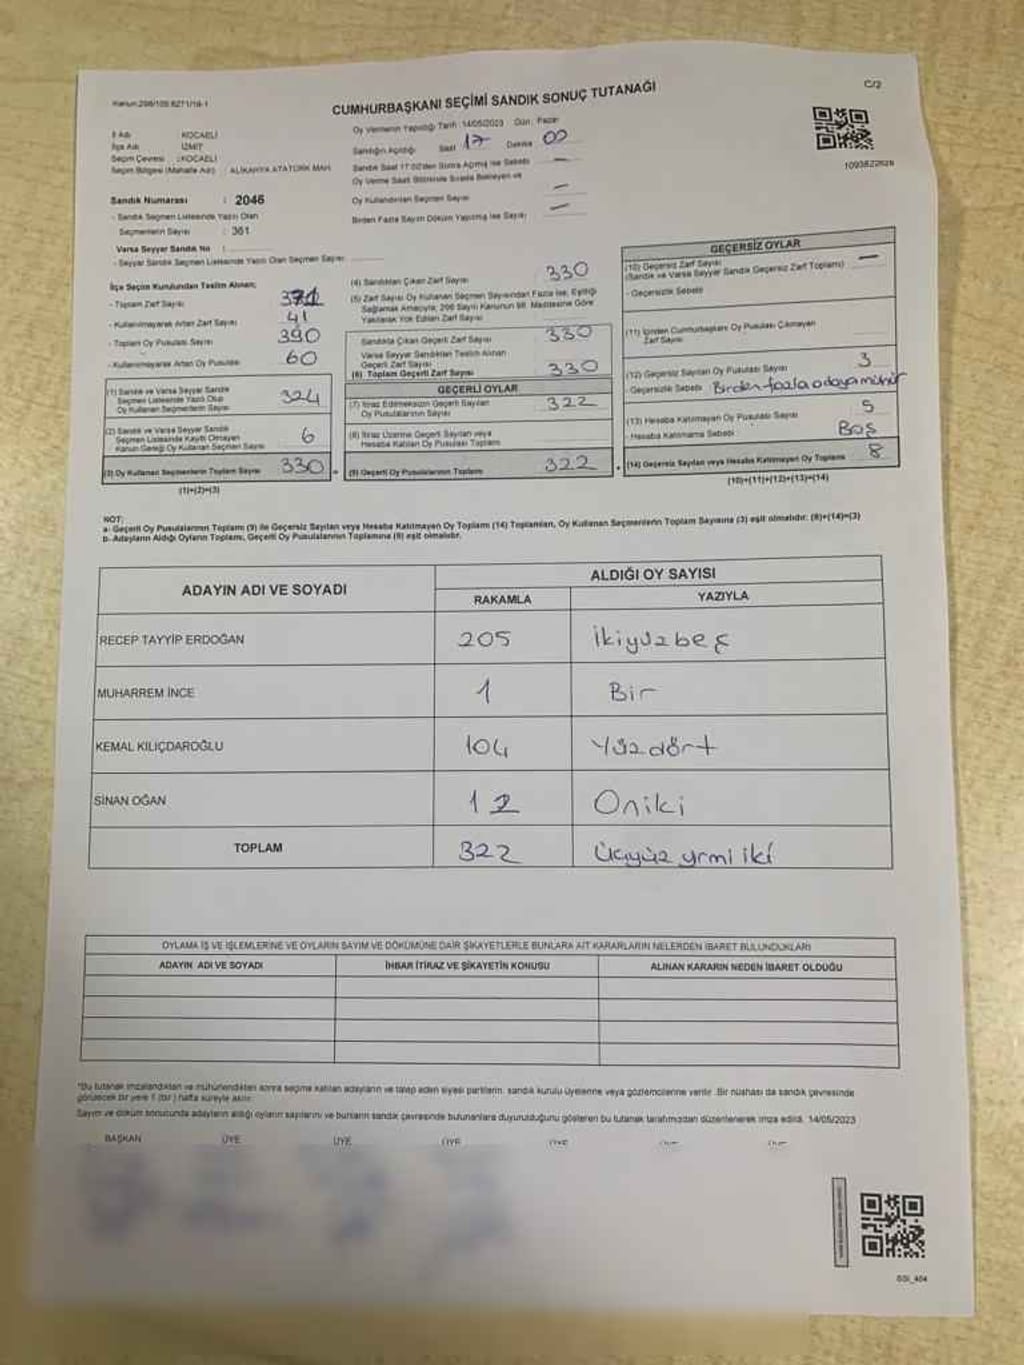 Kanun:298/105 6271/19-1
CUMHURBAŞKANI SEÇİMİ SANDIK SONUÇ TUTANAĞI
C/2
İl Adı KOCAELİ
İlçe Adı İZMİT
Seçim Çevresi : KOCAELİ
Seçim Bölgesi (Mahalle Adı) : ALİKAHYA ATATÜRK MAH.
Oy Vermenin Yapıldığı Tarih 14/05/2023 Gün: Pazar
Sandığın Açıldığı Saat 17 Dakika 00
Sandık Saat 17:00'den Sonra Açılmış İse Sebebi —
Oy Verme Saati Bitiminde Sırada Bekleyen ve
Oy Kullandırılan Seçmen Sayısı —
Birden Fazla Sayım Döküm Yapılmış İse Sayısı —
Sandık Numarası : 2046
- Sandık Seçmen Listesinde Yazılı Olan
Seçmenlerin Sayısı : 361
Varsa Seyyar Sandık No :
- Seyyar Sandık Seçmen Listesinde Yazılı Olan Seçmen Sayısı:
İlçe Seçim Kurulundan Teslim Alınan;
- Toplam Zarf Sayısı 371
- Kullanılmayarak Artan Zarf Sayısı 41
- Toplam Oy Pusulası Sayısı 390
- Kullanılmayarak Artan Oy Pusulası 60
(1) Sandık ve Varsa Seyyar Sandık
Seçmen Listesinde Yazılı Olup
Oy Kullanan Seçmenlerin Sayısı 324
(2) Sandık ve Varsa Seyyar Sandık
Seçmen Listesinde Kayıtlı Olmayan
Kanun Gereği Oy Kullanan Seçmen Sayısı 6
(3) Oy Kullanan Seçmenlerin Toplam Sayısı 330
(1)+(2)=(3)
(4) Sandıktan Çıkan Zarf Sayısı 330
(5) Zarf Sayısı Oy Kullanan Seçmen Sayısından Fazla İse, Eşitliği
Sağlamak Amacıyla; 298 Sayılı Kanunun 98. Maddesine Göre
Yakılarak Yok Edilen Zarf Sayısı
Sandıkta Çıkan Geçerli Zarf Sayısı 330
Varsa Seyyar Sandıktan Teslim Alınan
Geçerli Zarf Sayısı
(6) Toplam Geçerli Zarf Sayısı 330
GEÇERLİ OYLAR
(7) İtiraz Edilmeksizin Geçerli Sayılan
Oy Pusulalarının Sayısı 322
(8) İtiraz Üzerine Geçerli Sayılan veya
Hesaba Katılan Oy Pusulası Toplamı
(9) Geçerli Oy Pusulalarının Toplamı 322
GEÇERSİZ OYLAR
(10) Geçersiz Zarf Sayısı
(Sandık ve Varsa Seyyar Sandık Geçersiz Zarf Toplamı) —
- Geçersizlik Sebebi
(11) İçinden Cumhurbaşkanı Oy Pusulası Çıkmayan
Zarf Sayısı
(12) Geçersiz Sayılan Oy Pusulası Sayısı 3
- Geçersizlik Sebebi Birden fazla adaya mühür
(13) Hesaba Katılmayan Oy Pusulası Sayısı 5
- Hesaba Katılmama Sebebi Boş
(14) Geçersiz Sayılan veya Hesaba Katılmayan Oy Toplamı 8
(10)+(11)+(12)+(13)=(14)
NOT:
a- Geçerli Oy Pusulalarının Toplamı (9) ile Geçersiz Sayılan veya Hesaba Katılmayan Oy Toplamı (14) Toplamları, Oy Kullanan Seçmenlerin Toplam Sayısına (3) eşit olmalıdır. (9)+(14)=(3)
b- Adayların Aldığı Oyların Toplamı, Geçerli Oy Pusulalarının Toplamına (9) eşit olmalıdır.
ADAYIN ADI VE SOYADI ALDIĞI OY SAYISI
RAKAMLA YAZIYLA
RECEP TAYYİP ERDOĞAN 205 İkiyüzbeş
MUHARREM İNCE 1 Bir
KEMAL KILIÇDAROĞLU 104 Yüzdört
SİNAN OĞAN 12 Oniki
TOPLAM 322 Üçyüz yrmi iki
OYLAMA İŞ VE İŞLEMLERİNE VE OYLARIN SAYIM VE DÖKÜMÜNE DAİR ŞİKAYETLERLE BUNLARA AİT KARARLARIN NELERDEN İBARET BULUNDUKLARI
ADAYIN ADI VE SOYADI İHBAR İTİRAZ VE ŞİKAYETİN KONUSU ALINAN KARARIN NEDEN İBARET OLDUĞU
*Bu tutanak imzalandıktan ve mühürlendikten sonra seçime katılan adayların ve talep eden siyasi partilerin, sandık kurulu üyelerine veya gözlemcilerine verilir. Bir nüshası da sandık çevresinde
görülecek bir yere 1 (bir) hafta süreyle asılır.
Sayım ve döküm sonucunda adayların aldığı oyların sayılarını ve bunların sandık çevresinde bulunanlara duyurulduğunu gösteren bu tutanak tarafımızdan düzenlenerek imza edildi. 14/05/2023
BAŞKAN ÜYE ÜYE ÜYE ÜYE ÜYE ÜYE
SSI_404